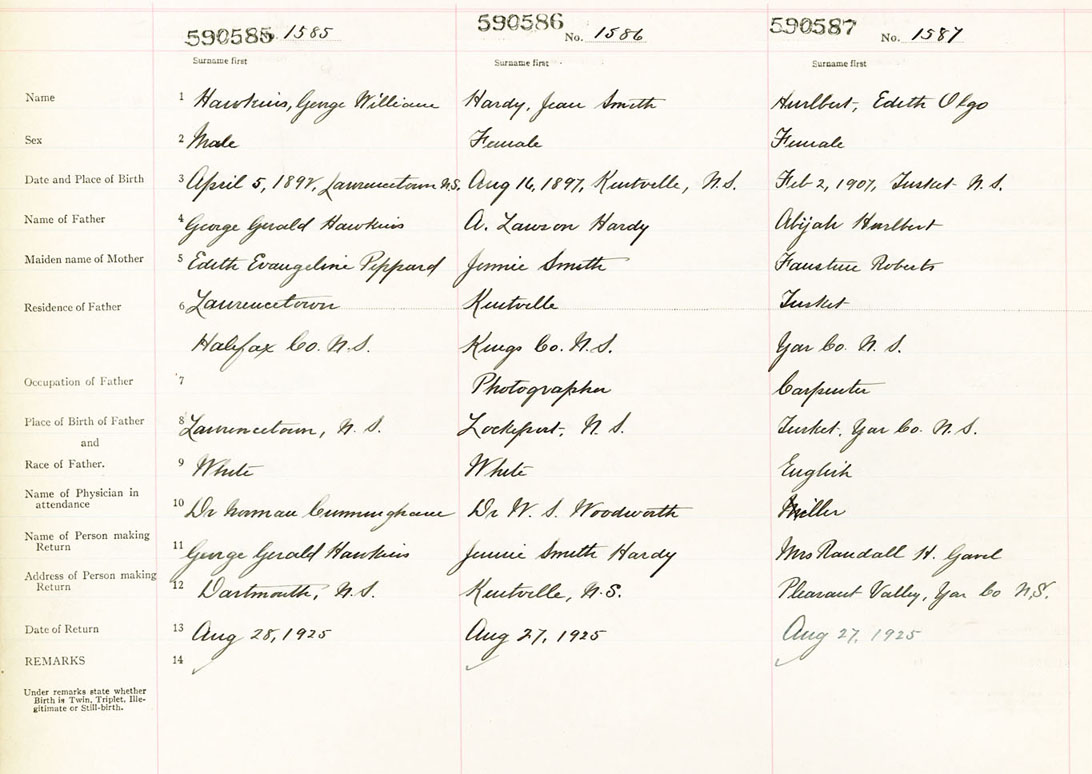 590585 1585 590586 No. 1586 590587 No. 1587
Surname first Surname first Surname first
Name 1 Hawkins, George William Hardy, Jean Smith Hurlbert, Edith Olga
Sex 2 Male Female Female
Date and Place of Birth 3 April 5, 1897, Lawrencetown N.S. Aug 16, 1897, Kentville, N.S. Feb 2, 1907, Tusket N.S.
Name of Father 4 George Gerald Hawkins A. Lawson Hardy Abijah Hurlbert
Maiden name of Mother 5 Edith Evangeline Peppard Jennie Smith Faustine Roberts
Residence of Father 6 Lawrencetown Kentville Tusket
Halifax Co. N.S. Kings Co. N.S. Yar Co. N.S.
Occupation of Father 7 Photographer Carpenter
Place of Birth of Father 8 Lawrencetown, N.S. Lockeport, N.S. Tusket, Yar Co. N.S.
and
Race of Father. 9 White White English
Name of Physician in
attendance 10 Dr Norman Cunningham Dr W. S. Woodworth Miller
Name of Person making
Return 11 George Gerald Hawkins Jennie Smith Hardy Mrs Randall H. Gavel
Address of Person making
Return 12 Dartmouth, N.S. Kentville, N.S. Pleasant Valley, Yar Co N.S.
Date of Return 13 Aug 28, 1925 Aug 27, 1925 Aug 27, 1925
REMARKS 14
Under remarks state whether
Birth is Twin, Triplet, Ille-
gitimate or Still-birth.